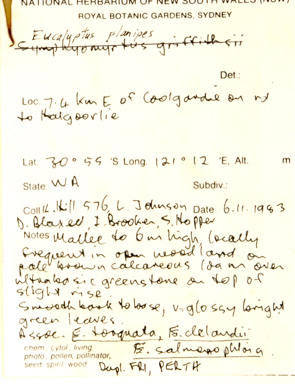 NATIONAL HERBARIUM OF NEW SOUTH WALES (NSW)
ROYAL BOTANIC GARDENS, SYDNEY
Eucalyptus planipes
Symphyomyrtus griffithsii
Det.:
Loc. 7.4 km E of Coolgardie on rd
to Kalgoorlie
Lat. 30° 55 'S Long. 121° 12 'E, Alt. m
State WA Subdiv.:
Coll. K. Hill 576, L. Johnson Date 6.11.1983
D. Blaxell, I. Brooker, S. Hopper
Notes Mallee to 6m high, locally
frequent in open woodland on
pale brown calcareous loam over
ultrabasic greenstone on top of
slight rise.
Smooth bark to base, v. glossy bright
green leaves.
Assoc. E. torquata, E. clelandii
chem., cytol., living, E. salmonophloia
photo, pollen, pollinator,
seed, spirit, wood Dupl. FRI, PERTH